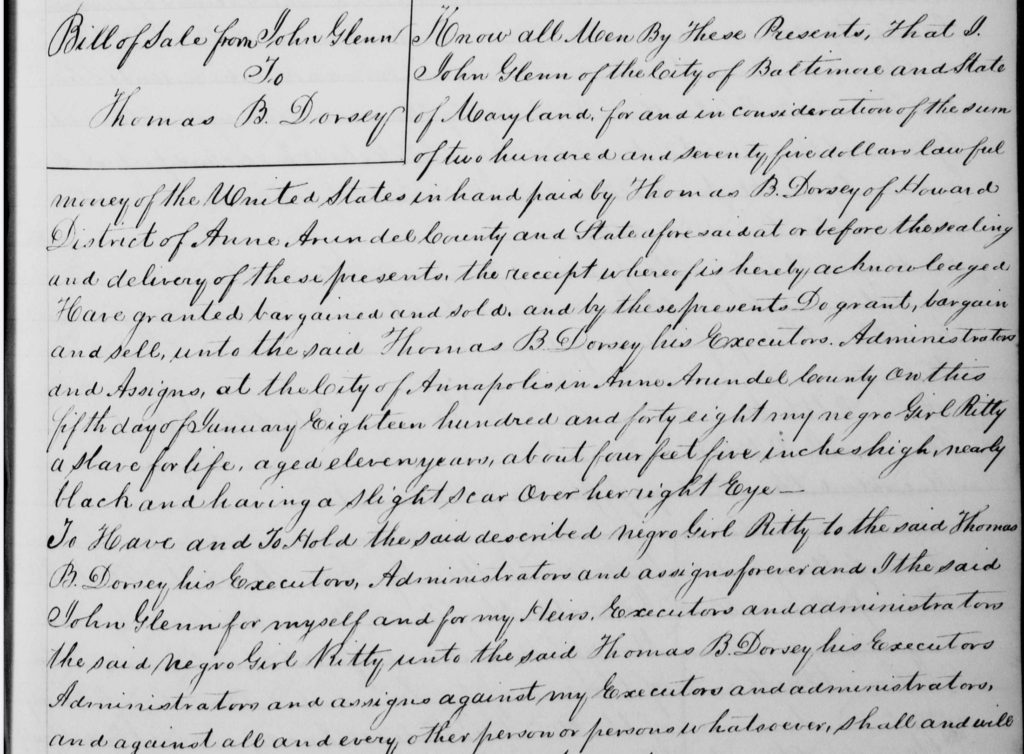 Bill of Sale from John Glenn
To
Thomas B. Dorsey
Know all Men By These Presents, That I.
John Glenn of the City of Baltimore and State
of Maryland, for and in consideration of the sum
of two hundred and seventy five dollars lawful
money of the United States in hand paid by Thomas B. Dorsey of Howard
District of Anne Arundel County and State aforesaid at or before the sealing
and delivery of these presents, the receipt whereof is hereby acknowledged
Have granted bargained and sold, and by these presents Do grant, bargain
and sell, unto the said Thomas B. Dorsey his Executors. Administrators
and Assigns, at the City of Annapolis in Anne Arundel County On this
fifth day of January Eighteen hundred and forty eight my negro Girl Kitty
a slave for life, aged eleven years, about four feet five inches high, nearly
black and having a slight scar over her right Eye—
To Have and To Hold the said described negro Girl Kitty to the said Thomas
B. Dorsey his Executors, Administrators and assigns forever and I the said
John Glenn for myself and for my Heirs, Executors and administrators
the said Negro Girl Kitty unto the said Thomas B. Dorsey his Executors
Administrators and assigns against my Executors and administrators,
and against all and every other person or persons whatsoever, shall and will